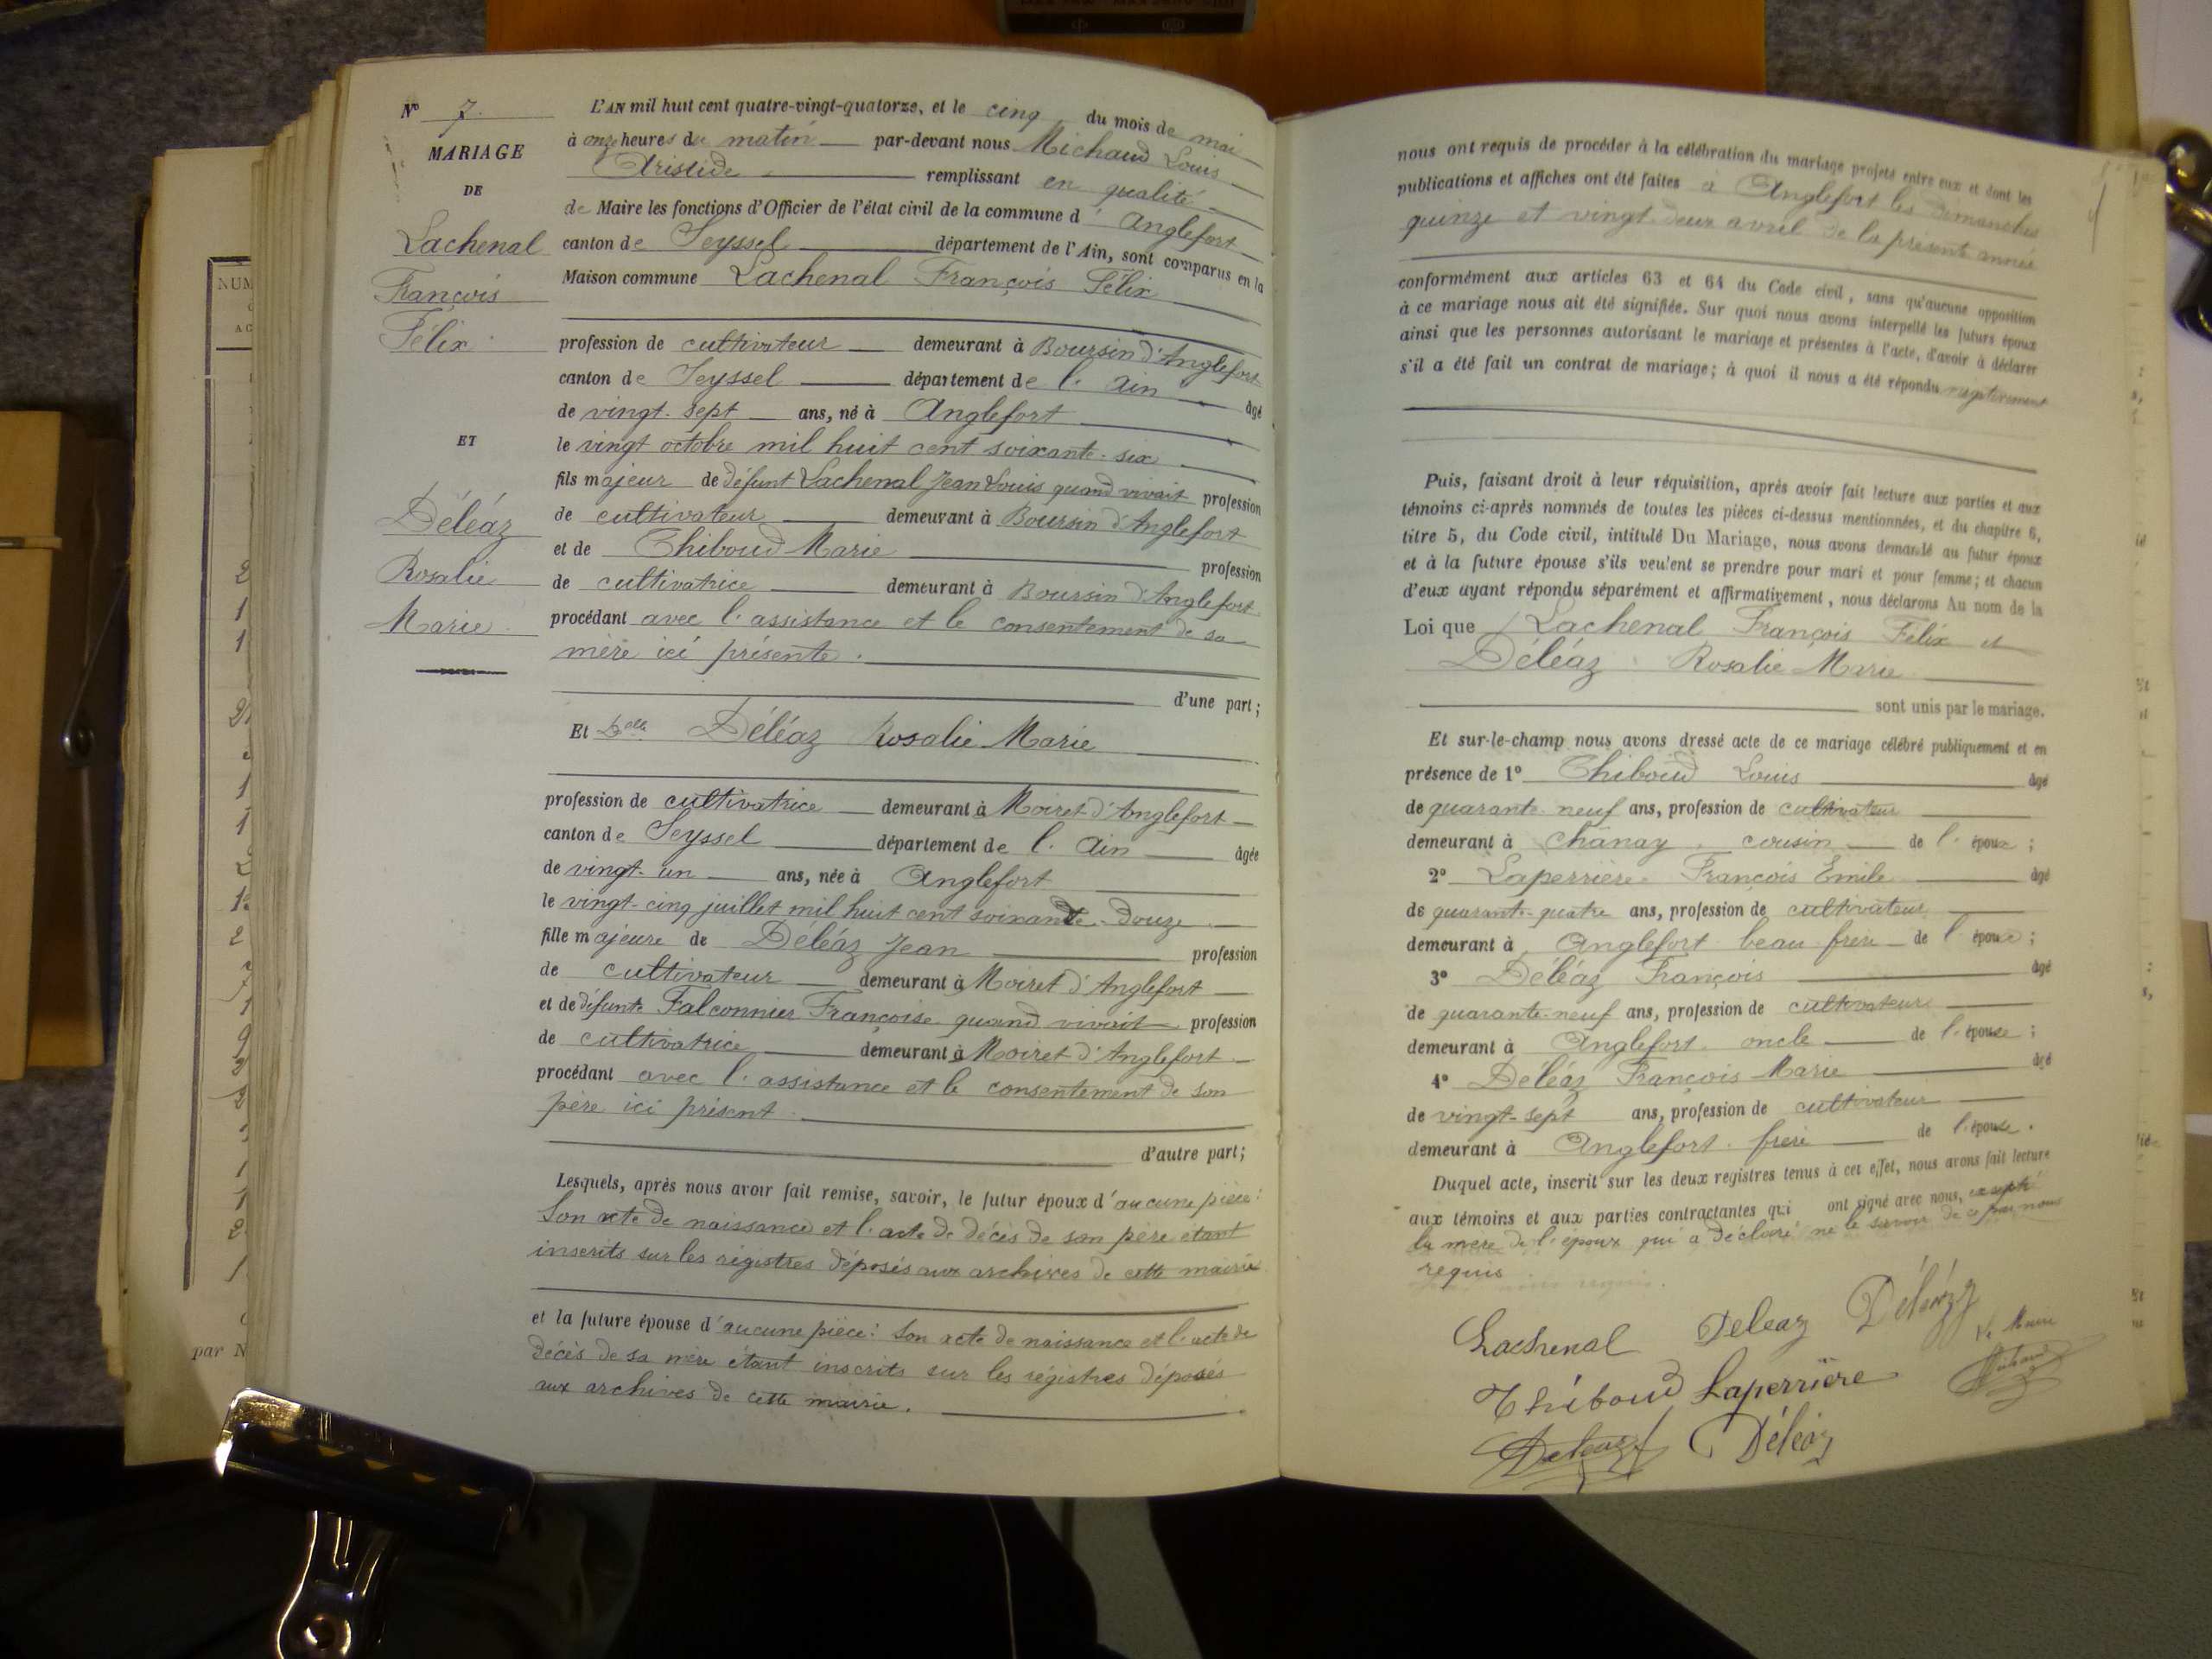 Nº 7.
MARIAGE
DE
Lachenal
François
Félix
ET
Déléaz
Rosalie
Marie
L'AN mil huit cent quatre-vingt-quatorze, et le cinq du mois de mai
à onze heures du matin par-devant nous Michaud Louis
Aristide remplissant en qualité
de Maire les fonctions d'Officier de l'état civil de la commune d' Anglefort
canton de Seyssel département de l'Ain, sont comparus en la
Maison commune Lachenal François Félix
profession de cultivateur demeurant à Boursin d'Anglefort
canton de Seyssel département de l'Ain âgé
de vingt-sept ans, né à Anglefort
le vingt octobre mil huit cent soixante-six
fils majeur de défunt Lachenal Jean Louis quand vivait profession
de cultivateur demeurant à Boursin d'Anglefort
et de Thiboud Marie profession
de cultivatrice demeurant à Boursin d'Anglefort
procédant avec l'assistance et le consentement de sa
mère ici présente.
d'une part;
Et Delle Déléaz Rosalie Marie
profession de cultivatrice demeurant à Moiret d'Anglefort
canton de Seyssel département de l'Ain âgée
de vingt-un ans, née à Anglefort
le vingt-cinq juillet mil huit cent soixante-douze
fille majeure de Déléaz Jean profession
de cultivateur demeurant à Moiret d'Anglefort
et de défunte Falconnier Françoise quand vivait profession
de cultivatrice demeurant à Moiret d'Anglefort
procédant avec l'assistance et le consentement de son
père ici présent
d'autre part;
Lesquels, après nous avoir fait remise, savoir, le futur époux d'aucune pièce:
Son acte de naissance et l'acte de décès de son père étant
inscrits sur les régistres déposés aux archives de cette mairie
et la future épouse d'aucune pièce: Son acte de naissance et l'acte de
décès de sa mère étant inscrits sur les régistres déposés
aux archives de cette mairie.
nous ont requis de procéder à la célébration du mariage projeté entre eux et dont les
publications et affiches ont été faites à Anglefort les dimanches
quinze et vingt-deux avril de la présente année
conformément aux articles 63 et 64 du Code civil, sans qu'aucune opposition
à ce mariage nous ait été signifiée. Sur quoi nous avons interpellé les futurs époux
ainsi que les personnes autorisant le mariage et présentes à l'acte, d'avoir à déclarer
s'il a été fait un contrat de mariage; à quoi il nous a été répondu négativement
Puis, faisant droit à leur réquisition, après avoir fait lecture aux parties et aux
témoins ci-après nommés de toutes les pièces ci-dessus mentionnées, et du chapitre 6,
titre 5, du Code civil, intitulé Du Mariage, nous avons demandé au futur époux
et à la future épouse s'ils veulent se prendre pour mari et pour femme; et chacun
d'eux ayant répondu séparément et affirmativement, nous déclarons Au nom de la
Loi que Lachenal François Félix et
Déléaz Rosalie Marie
sont unis par le mariage.
Et sur-le-champ nous avons dressé acte de ce mariage célébré publiquement et en
présence de 1º Thiboud Louis âgé
de quarante-neuf ans, profession de cultivateur
demeurant à Chanay, cousin de l'époux;
2º Laperrière François Emile âgé
de quarante-quatre ans, profession de cultivateur
demeurant à Anglefort beau-frère de l'épouse;
3º Déléaz François âgé
de quarante-neuf ans, profession de cultivateur
demeurant à Anglefort oncle de l'épouse;
4º Déléaz François Marie âgé
de vingt-sept ans, profession de cultivateur
demeurant à Anglefort frère de l'épouse.
Duquel acte, inscrit sur les deux registres tenus à cet effet, nous avons fait lecture
aux témoins et aux parties contractantes qui ont signé avec nous, excepté
la mère de l'époux qui a déclaré ne le savoir de ce par nous
requis
Lachenal Deleaz Déléaz
Le Maire
Thiboud Laperrière Michaud
Deleaz Déléaz
NUM
AC
par N